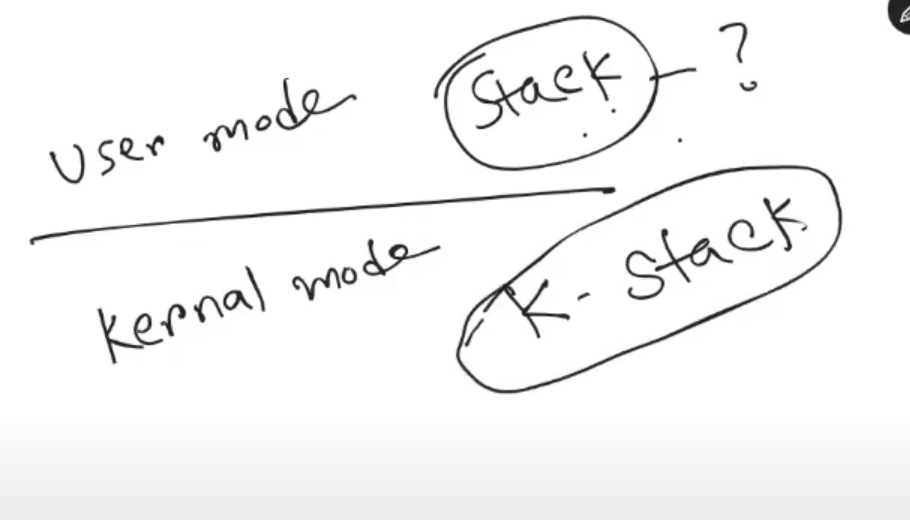 User mode Stack - ?
Kernal mode K- Stack